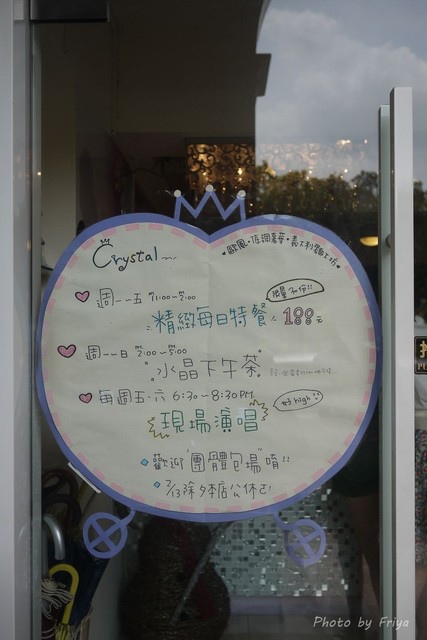 Crystal
•歐風•低調奢華•義大利麵工坊•
週一~五 11:00~2:00
限量不多!!
精緻每日特餐 188元
週一~日 2:00~5:00
水晶下午茶
每週五、六 6:30~8:30 PM.
現場演唱
好high
歡迎"團體包場"唷!!
2/13除夕本店公休
Photo by Friya